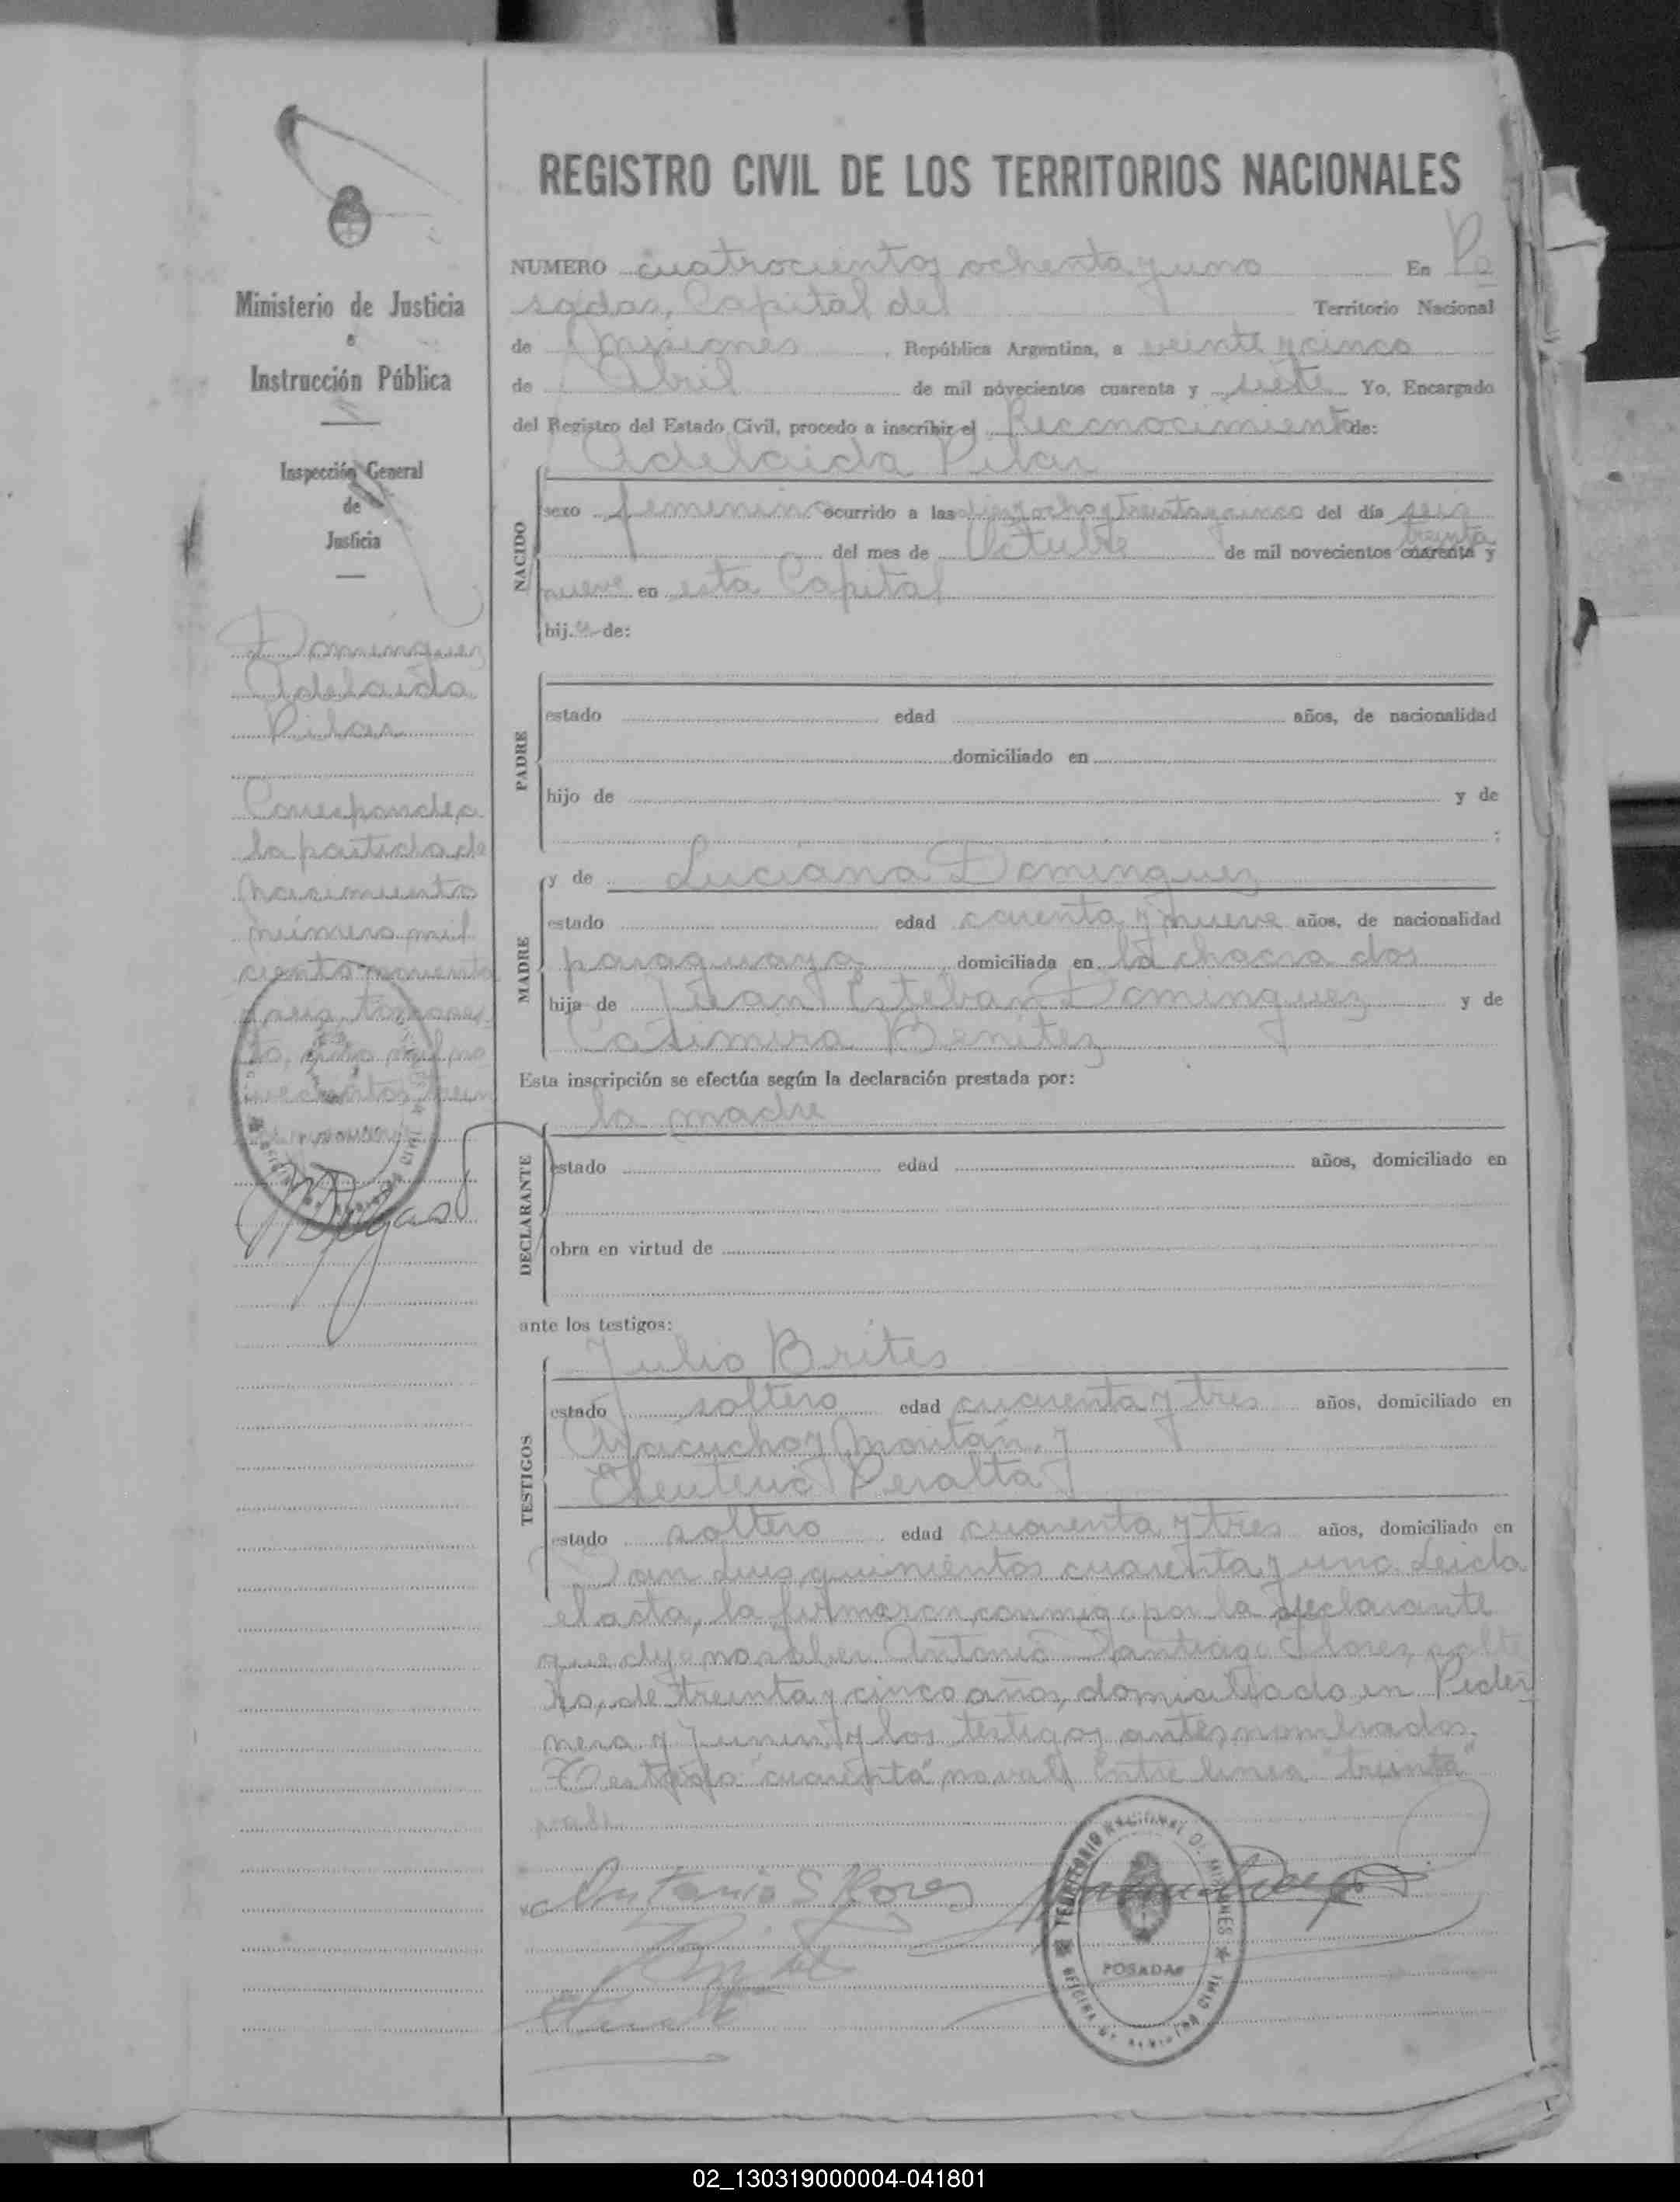 REGISTRO CIVIL DE LOS TERRITORIOS NACIONALES
Ministerio de Justicia
e
Instrucción Pública
Inspección General
de
Justicia
Dominguez
Adelaida
Pilar
Corresponde a
la partida de
nacimiento
número mil
ciento noventa
y seis, tomo
NUMERO cuatrocientos ochenta y uno En Po
sadas, Capital del Territorio Nacional
de Misiones, República Argentina, a veinte y cinco
de Abril de mil novecientos cuarenta y siete Yo, Encargado
del Registro del Estado Civil, procedo a inscribir el Reconocimiento de:
Adelaida Pilar
NACIDO
sexo femenino ocurrido a las diez y ocho y treinta y cinco del día seis
treinta
del mes de Octubre de mil novecientos cuarenta y
nueve en esta Capital
hij.a de:
PADRE
estado edad años, de nacionalidad
domiciliado en
hijo de y de
;
MADRE
y de Luciana Dominguez
estado edad cuarenta y nueve años, de nacionalidad
paraguaya, domiciliada en la chacra dos
hija de Juan Esteban Dominguez y de
Casimira Benitez
Esta inscripción se efectúa según la declaración prestada por:
la madre
DECLARANTE
estado edad años, domiciliado en
obra en virtud de
ante los testigos:
TESTIGOS
Julio Brites
estado soltero edad cuarenta y tres años, domiciliado en
Ayacucho y Moritán, y
Eleuterio Peralta
estado soltero edad cuarenta y tres años, domiciliado en
San Luis quinientos cuarenta y uno. Leida
el acta, la firmaron conmigo por la declarante
que dijo no saber Antonio Santiago Flores, solte
ro, de treinta y cinco años, domiciliado en Peder
nera y Junin y los testigos antes nombrados.
Testado "cuarenta" no vale Entre linea "treinta"
vale
Antonio S Flores
TERRITORIO NACIONAL DE MISIONES
POSADAS
OFICINA DE REGISTRO CIVIL
02_130319000004-041801